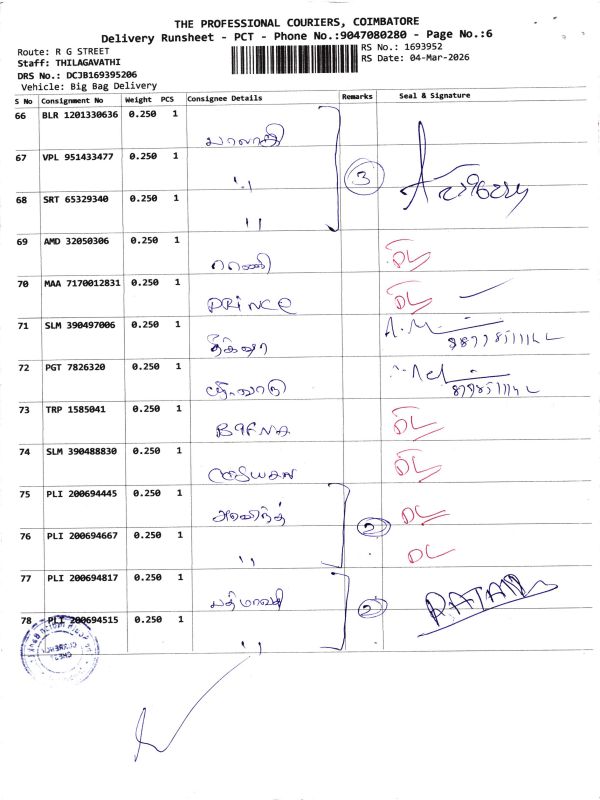 THE PROFESSIONAL COURIERS, COIMBATORE
Delivery Runsheet - PCT - Phone No.:9047080280 - Page No.:6
Route: R G STREET
RS No.: 1693952
Staff: THILAGAVATHI
RS Date: 04-Mar-2026
DRS No.: DCJB169395206
Vehicle: Big Bag Delivery
S No Consignment No Weight PCS Consignee Details Remarks Seal & Signature
66 BLR 1201330636 0.250 1
67 VPL 951433477 0.250 1 " 3
68 SRT 65329340 0.250 1 "
69 AMD 32050306 0.250 1 ராணி DL
70 MAA 7170012831 0.250 1 PRINCE DL
71 SLM 390497006 0.250 1
72 PGT 7826320 0.250 1
73 TRP 1585041 0.250 1 DL
74 SLM 390488830 0.250 1 DL
75 PLI 200694445 0.250 1 அரவிந்த் 2 DL
76 PLI 200694667 0.250 1 " DL
77 PLI 200694817 0.250 1 பத்மாவதி 2 RATAN
78 PLI 200694515 0.250 1 "